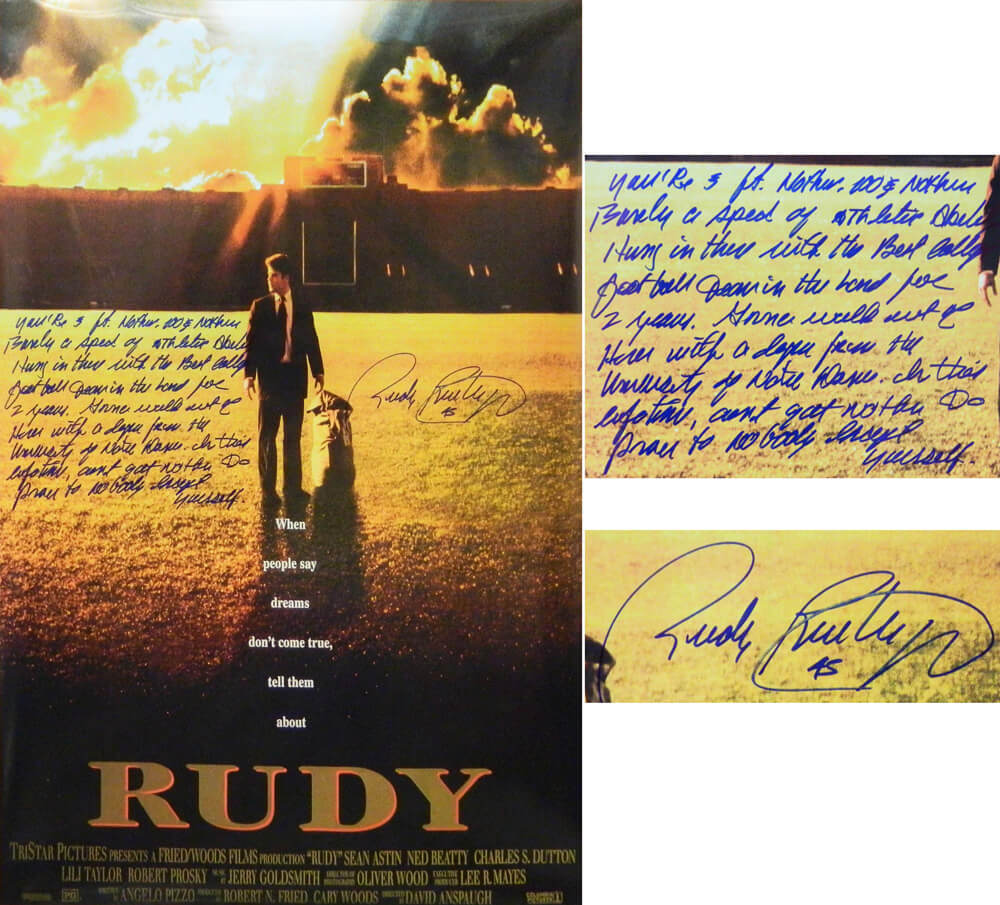 You'Re 5 ft. Nothin. 100 & Nothin
Barely a Speck of athletic
Hung in there with the Best
football in the land for
2 years. Gonna walk out of
Here with a degree from the
University of Notre Dame. In this
lifetime, dont gotta nothin Do
Prove to nobody Except
yourself.
Rudy Ruettiger
45
When
people say
dreams
don't come true,
tell them
about
RUDY
TRISTAR PICTURES PRESENTS A FRIED/WOODS FILMS PRODUCTION "RUDY" SEAN ASTIN NED BEATTY CHARLES S. DUTTON
LILI TAYLOR ROBERT PROSKY MUSIC BY JERRY GOLDSMITH DIRECTOR OF PHOTOGRAPHY OLIVER WOOD EXECUTIVE PRODUCER LEE R. MAYES
WRITTEN BY ANGELO PIZZO PRODUCED BY ROBERT N. FRIED CARY WOODS DIRECTED BY DAVID ANSPAUGH
PG
You'Re 5 ft. Nothin. 100 & Nothin
Barely a Speck of athletic
Hung in there with the Best
football in the land for
2 years. Gonna walk out of
Here with a degree from the
University of Notre Dame. In this
lifetime, dont gotta nothin Do
Prove to nobody Except
yourself.
Rudy Ruettiger
45